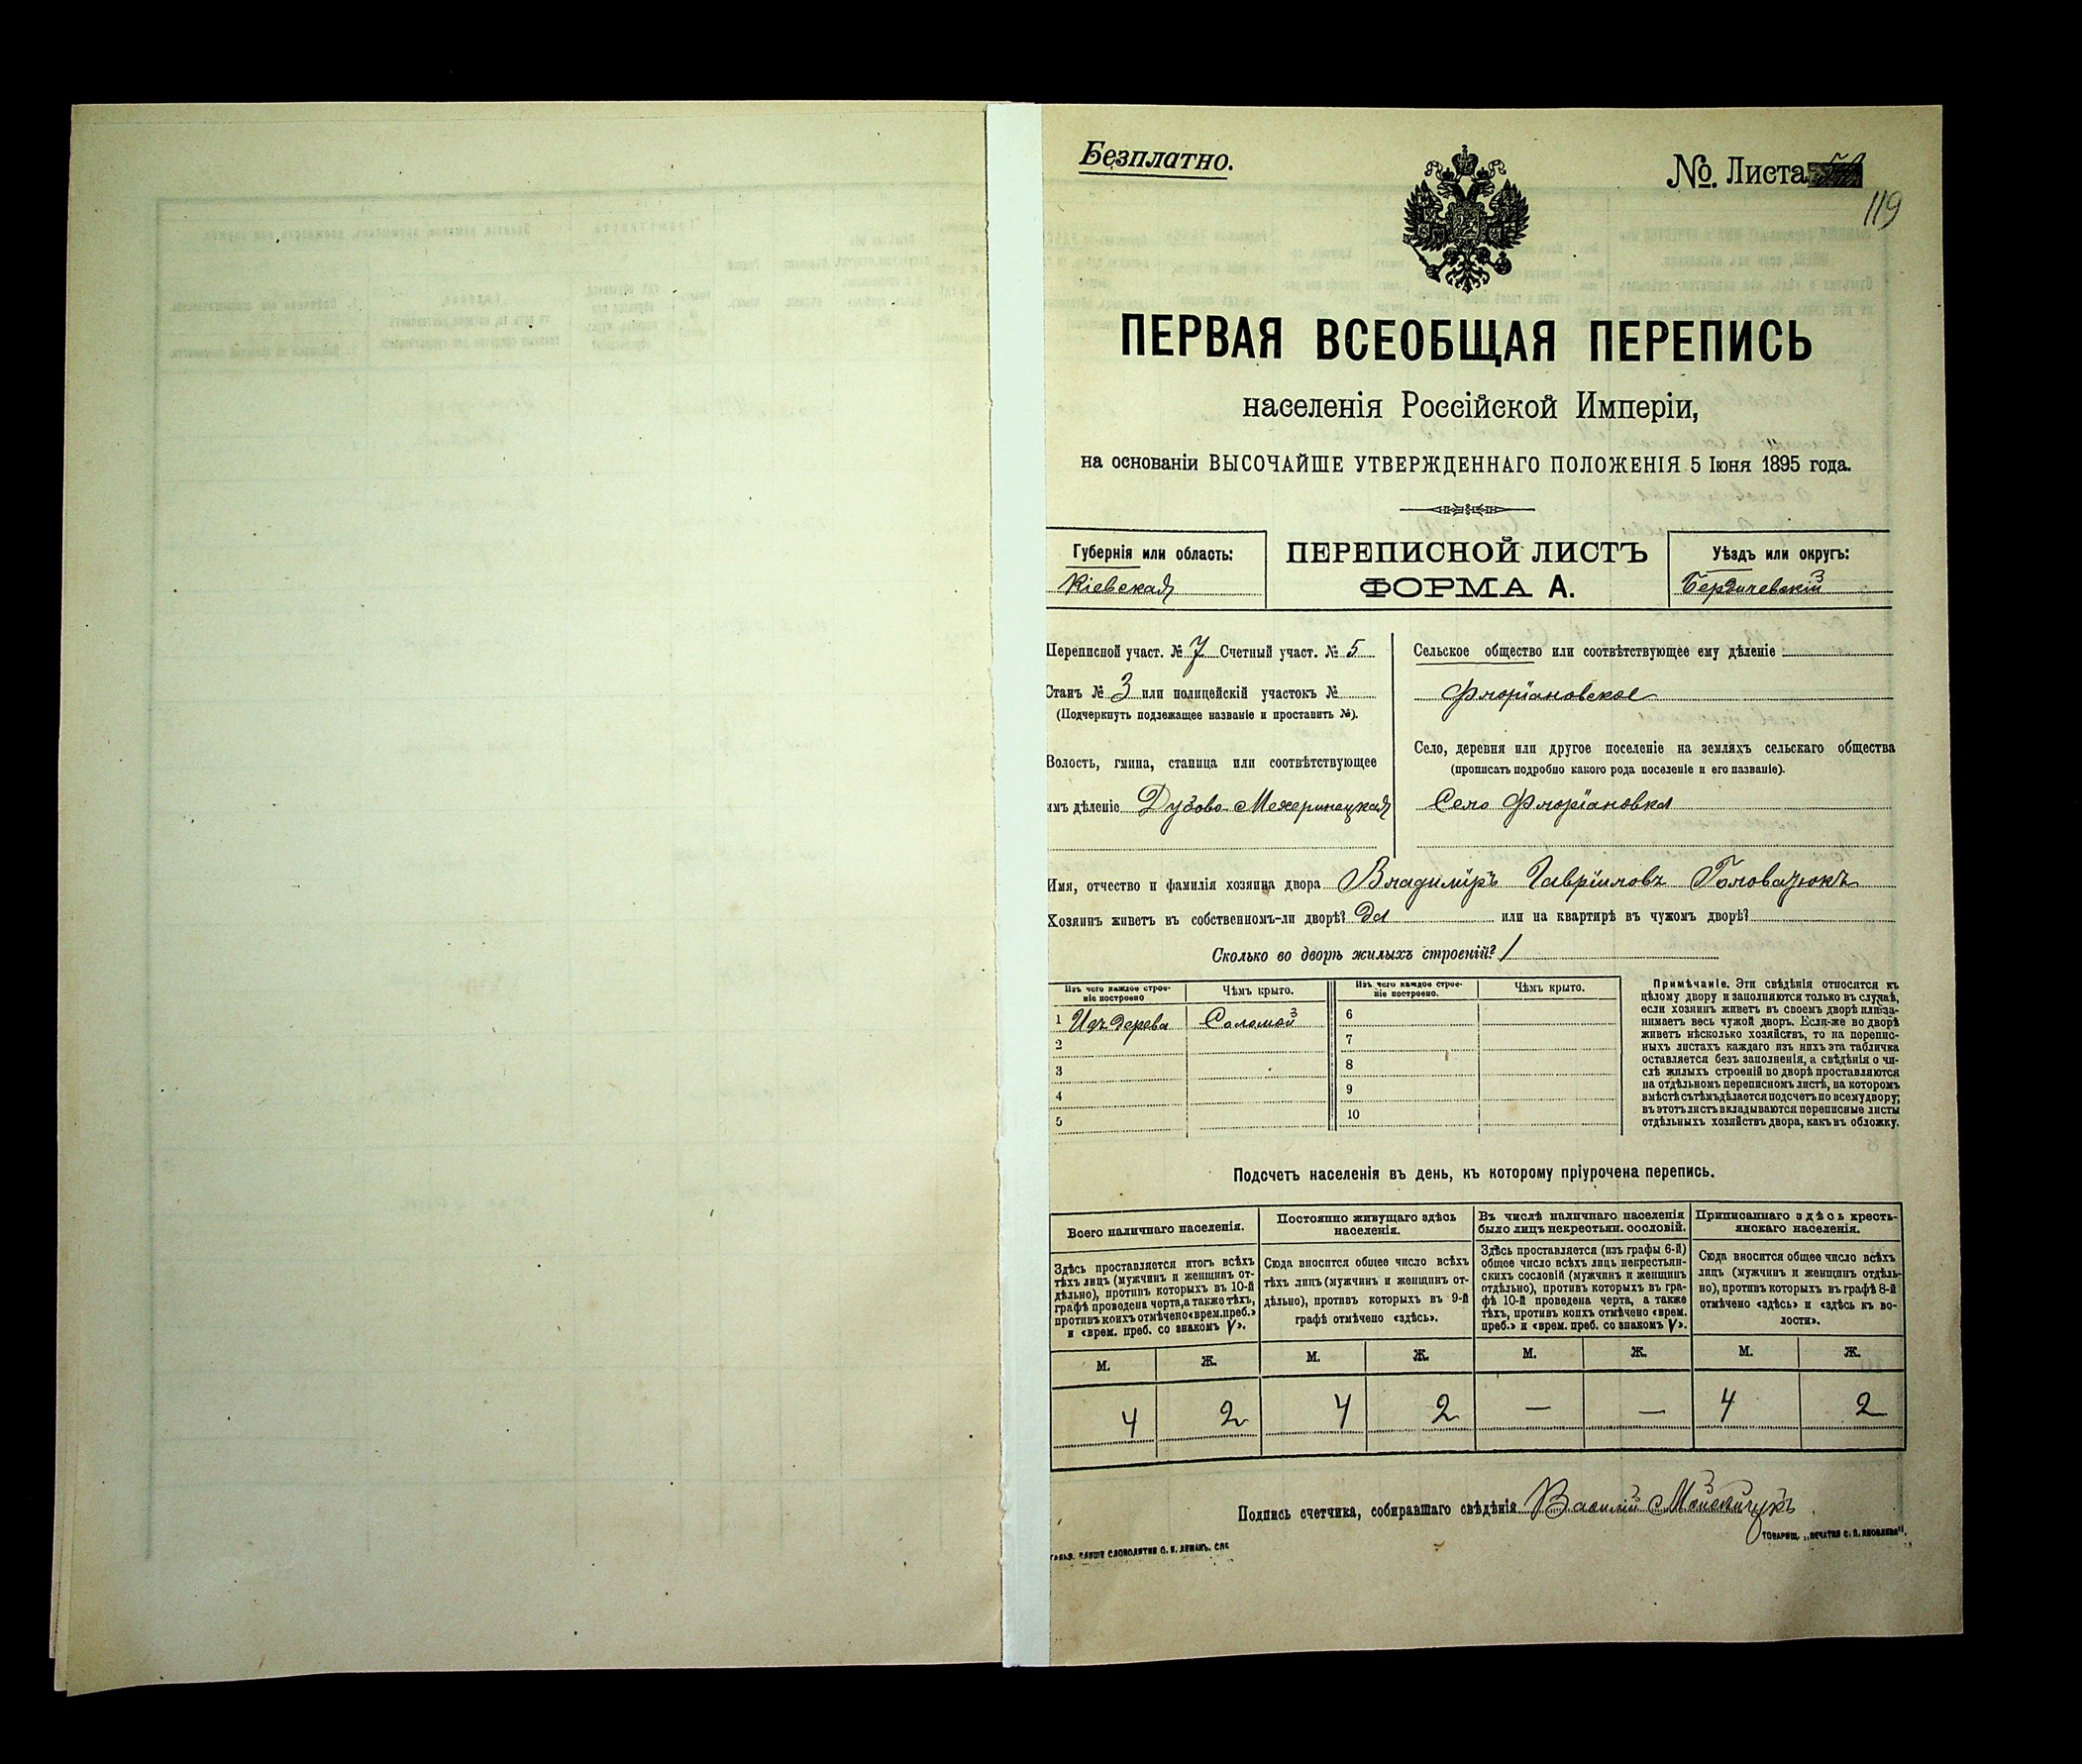 Безплатно.
№. Листа
119
ПЕРВАЯ ВСЕОБЩАЯ ПЕРЕПИСЬ
населенія Россійской Имперіи,
на основаніи ВЫСОЧАЙШЕ УТВЕРЖДЕННАГО ПОЛОЖЕНІЯ 5 Іюня 1895 года.
Губернія или область:
Кіевская
ПЕРЕПИСНОЙ ЛИСТЪ
ФОРМА А.
Уѣздъ или округъ:
Бердичевскій
Переписной участ. № 7 Счетный участ. № 5
Станъ № 3 или полицейскій участокъ №
(Подчеркнуть подлежащее названіе и проставить №).
Волость, гмина, станица или соотвѣтствующее
имъ дѣленіе Дубово-Мехеринецкая
Сельское общество или соотвѣтствующее ему дѣленіе
Флоріановское
Село, деревня или другое поселеніе на земляхъ сельскаго общества
(прописать подробно какого рода поселеніе и его названіе).
Село Флоріановка
Имя, отчество и фамилія хозяина двора Владиміръ Гавріиловъ Головатюкъ
Хозяинъ живетъ въ собственномъ-ли дворѣ? Да или на квартирѣ въ чужомъ дворѣ?
Сколько во дворѣ жилыхъ строеній? 1
Изъ чего каждое строеніе построено
Чѣмъ крыто.
Изъ чего каждое строеніе построено.
Чѣмъ крыто.
1 Изъ дерева Соломой
2
3
4
5
6
7
8
9
10
Примѣчаніе. Эти свѣдѣнія относятся къ
цѣлому двору и заполняются только въ случаѣ,
если хозяинъ живетъ въ своемъ дворѣ или за-
нимаетъ весь чужой дворъ. Если-же во дворѣ
живетъ нѣсколько хозяйствъ, то на перепис-
ныхъ листахъ каждаго изъ нихъ эта табличка
оставляется безъ заполненія, а свѣдѣнія о чи-
слѣ жилыхъ строеній во дворѣ проставляются
на отдѣльномъ переписномъ листѣ, на которомъ
вмѣстѣ съ тѣмъ дѣлается подсчетъ по всему двору;
въ этотъ листъ вкладываются переписные листы
отдѣльныхъ хозяйствъ двора, какъ въ обложку.
Подсчетъ населенія въ день, къ которому пріурочена перепись.
Всего наличнаго населенія.
Здѣсь проставляется итогъ всѣхъ
тѣхъ лицъ (мужчинъ и женщинъ от-
дѣльно), противъ которыхъ въ 10-й
графѣ проведена черта, а также тѣхъ,
противъ коихъ отмѣчено «врем. преб.»
и «врем. преб. со знакомъ V».
Постоянно живущаго здѣсь
населенія.
Сюда вносится общее число всѣхъ
тѣхъ лицъ (мужчинъ и женщинъ от-
дѣльно), противъ которыхъ въ 9-й
графѣ отмѣчено «здѣсь».
Въ числѣ наличнаго населенія
было лицъ некрестьян. сословій.
Здѣсь проставляется (изъ графы 6-й)
общее число всѣхъ лицъ некрестьян-
скихъ сословій (мужчинъ и женщинъ
отдѣльно), противъ которыхъ въ гра-
фѣ 10-й проведена черта, а также
тѣхъ, противъ коихъ отмѣчено «врем.
преб.» и «врем. преб. со знакомъ V».
Приписаннаго здѣсь кресть-
янскаго населенія.
Сюда вносится общее число всѣхъ
лицъ (мужчинъ и женщинъ отдѣль-
но), противъ которыхъ въ графѣ 8-й
отмѣчено «здѣсь» и «здѣсь къ во-
лости».
М. Ж. М. Ж. М. Ж. М. Ж.
4 2 4 2 — — 4 2
Подпись счетчика, собиравшаго свѣдѣнія Василій
СЛОВОЛИТНИ О. И. ЛЕМАНЪ. СПБ
ТОВАРИЩ. „ПЕЧАТНЯ С. П. ЯКОВЛЕВА".